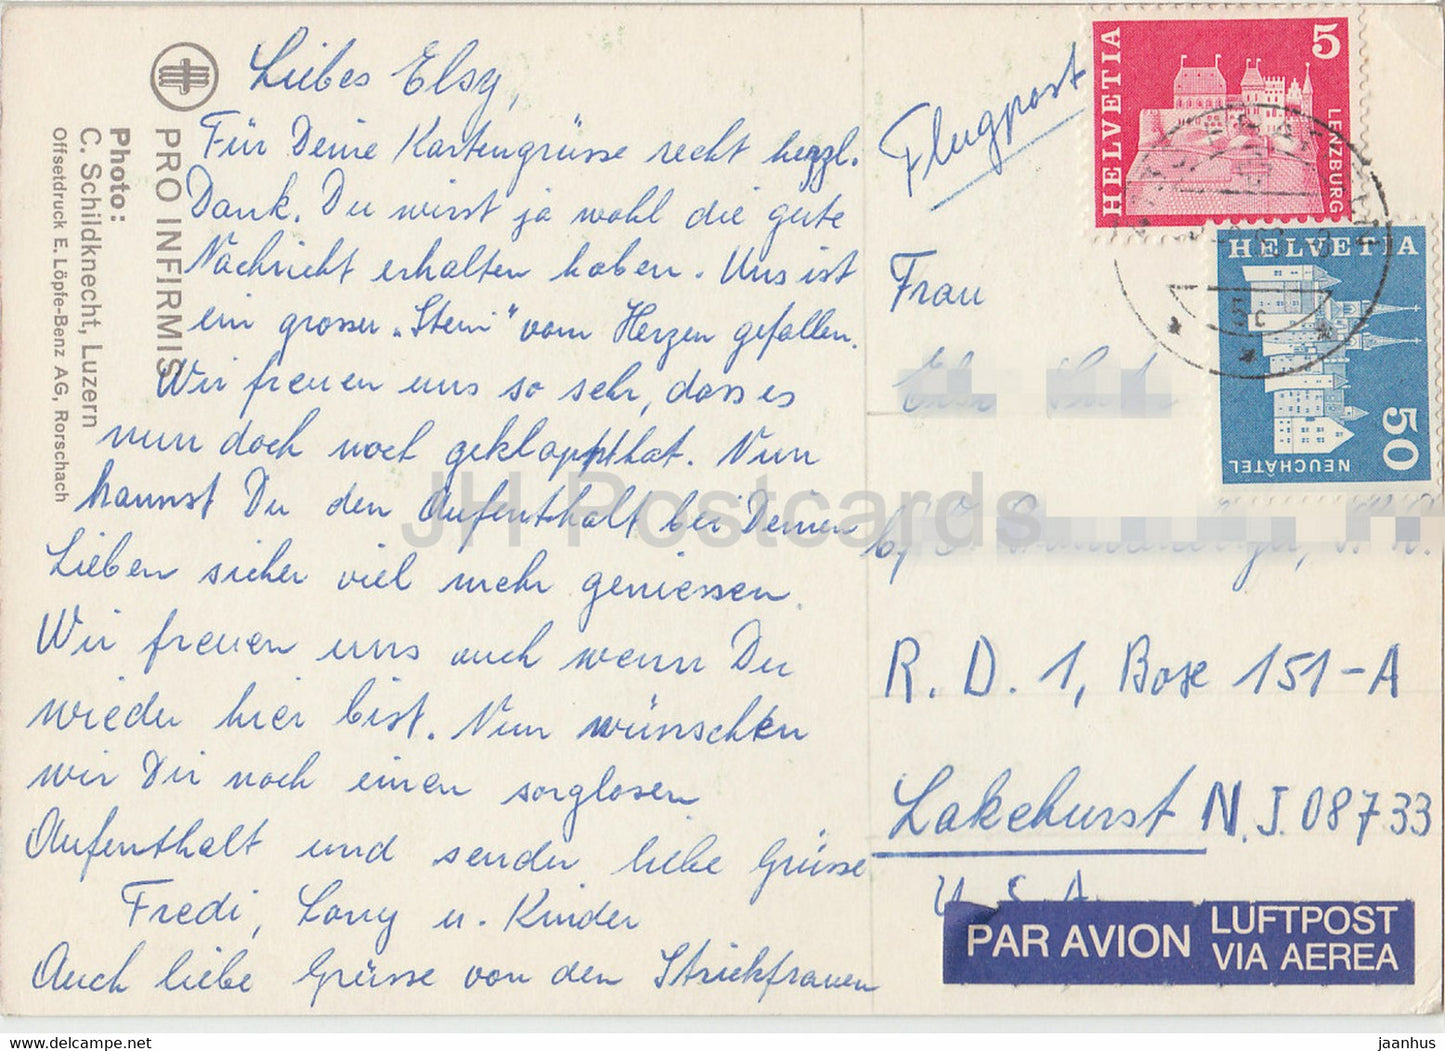 Liebes Elsy,
Für Deine Kartengrüsse recht herzl.
Dank. Du wirst ja wohl die gute
Nachricht erhalten haben. Uns ist
ein grosser „Stein“ vom Herzen gefallen.
Wir freuen uns so sehr, dass es
nun doch noch geklappt hat. Nun
kannst Du den Aufenthalt bei Deinen
Lieben sicher viel mehr geniessen.
Wir freuen uns auch wenn Du
wieder hier bist. Nun wünschen
wir Dir noch einen sorglosen
Aufenthalt und senden liebe Grüsse
Fredi, Lony u. Kinder
Auch liebe Grüsse von den Strickfrauen
PRO INFIRMIS
Photo:
C. Schildknecht, Luzern
Offsetdruck E. Löpfe-Benz AG, Rorschach
Flugpost
HELVETIA
5
LENZBURG
HELVETIA
50
NEUCHÂTEL
Frau
R. D. 1, Boxe 151-A
Lakehurst N.J. 08733
U.S.A.
PAR AVION
LUFTPOST
VIA AEREA
JH Postcards
HipPostcard.com
jaanhus